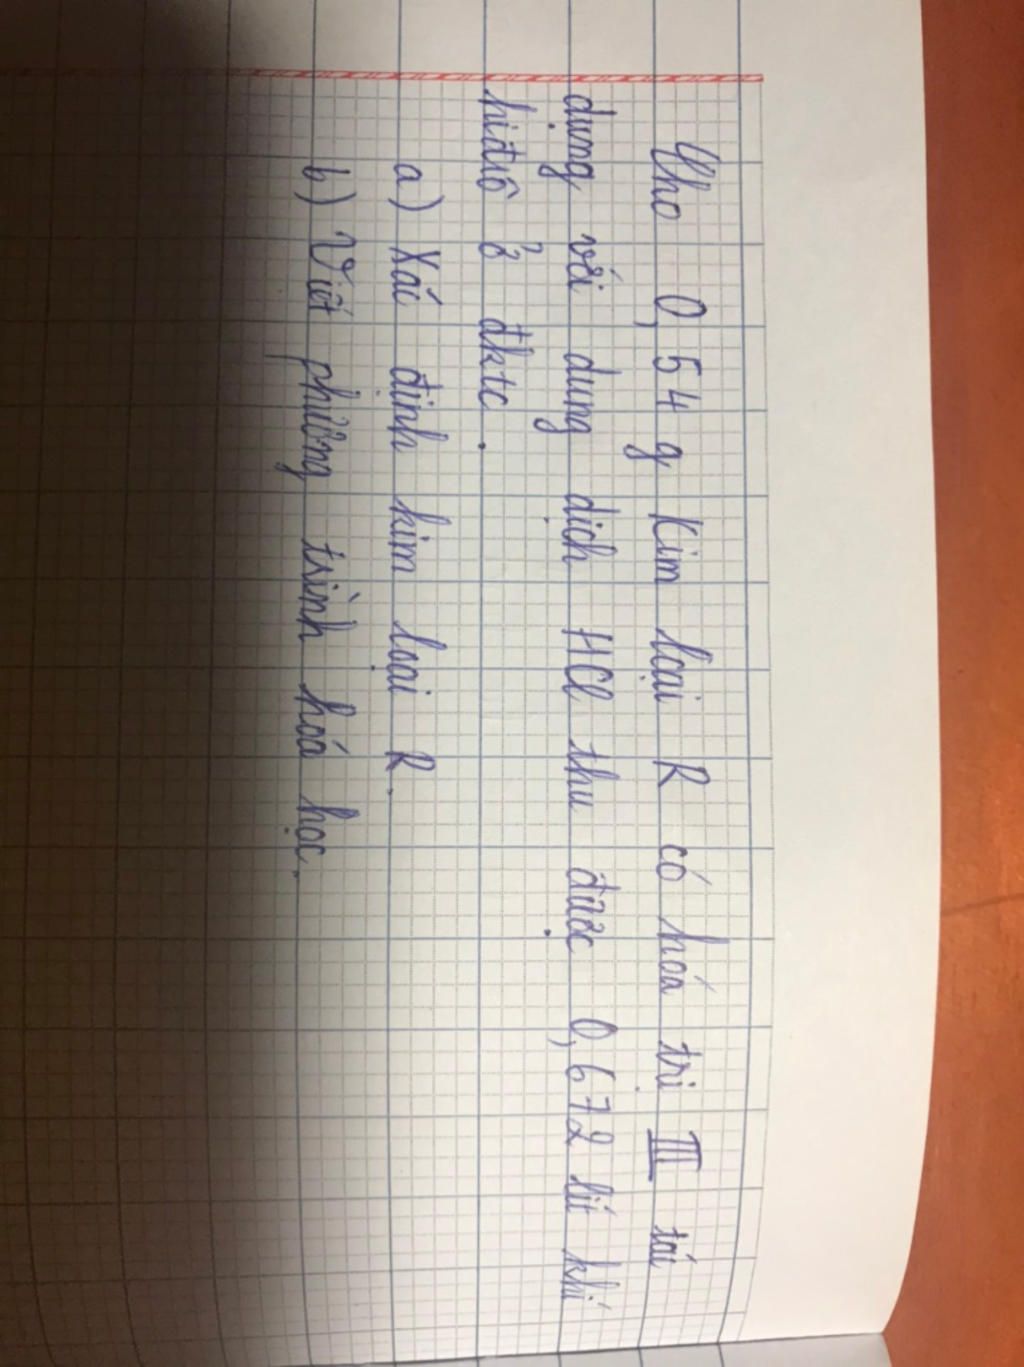 Cho 0,54 g Kim loại R có hóa trị III tác
dụng với dung dịch HCl thu được 0,672 lít khí
hiđrô ở đktc.
a) Xác định kim loại R.
b) Viết phương trình hóa học.